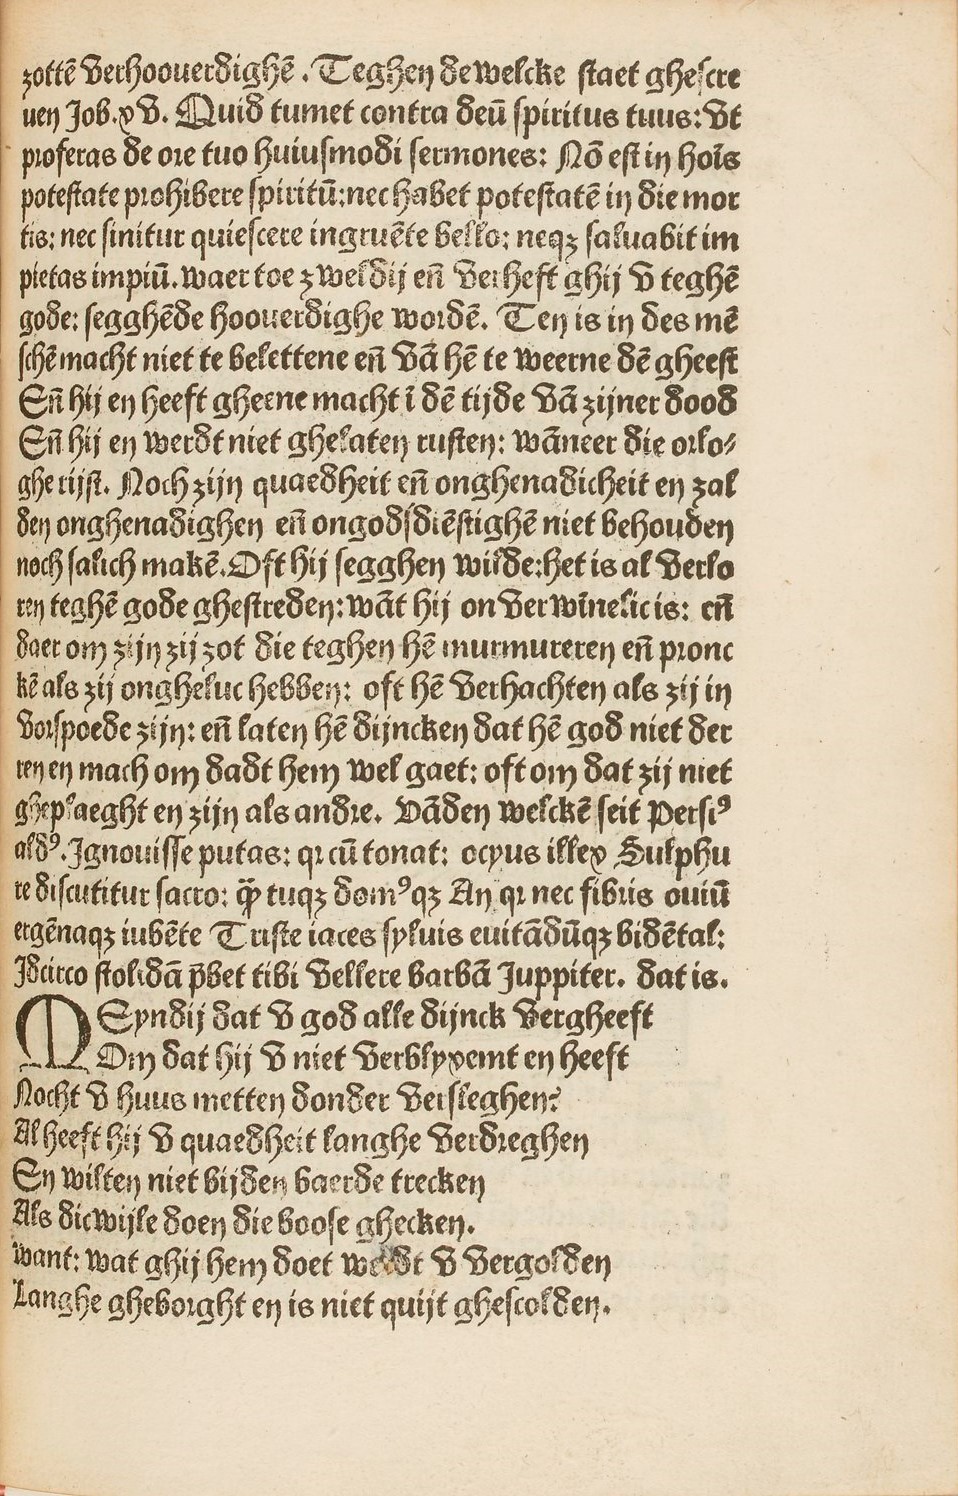 zottē verhoouerdighē. Teghen dewelcke staet ghescre
uen Job.xv. Quid tumet contra deū spiritus tuus: vt
proferas de ore tuo huiusmodi sermones: Nō est in hoīs
potestate prohibere spiritū: nec habet potestatē in die mor
tis: nec sinitur quiescere ingruēte bello: neqꝫ saluabit im
pietas impiū. waer toe zweldij eñ verheft ghij v teghē
gode: segghēde hoouerdighe wordē. Ten is in des mē
schē macht niet te belettene eñ vā hē te weerne dē gheest
Eñ hij en heeft gheene macht ī dē tijde vā zijner dood
Eñ hij en werdt niet ghelaten rusten: wāneer die orlo⸗
ghe rijst. Noch zijn quaedheit eñ onghenadicheit en zal
den onghenadighen eñ ongodsdiēstighē niet behouden
noch salich makē. Oft hij segghen wilde: het is al verlo
ren teghē gode ghestreden: wāt hij onverwīnelic is: eñ
daer om zijn zij zot die teghen hē murmureren eñ pronc
kē als zij ongheluc hebben: oft hē verhachten als zij in
vorspoede zijn: eñ laten hē dijncken dat hē god niet der
ren en mach om dadt hem wel gaet: oft om dat zij niet
gheplaeght en zijn als andre. Vāden welckē seit Persiꝰ
aldꝰ. Ignouisse putas: qꝛ cū tonat: ocyus illex Sulphu
re discutitur sacro: q̄ꝫ tuqꝫ domꝰqꝫ An qꝛ nec fibris ouiū
ergēnaqꝫ iubēte Triste iaces syluis euitādūqꝫ bidētal:
Idcirco stolidā p̄bet tibi vellere barbā Juppiter. dat is.
MEyndij dat v god alle dijnck vergheeft
Om dat hij v niet verblyxemt en heeft
Nocht v huus metten donder versleghen?
Al heeft hij v quaedheit langhe verdreghen
En wilten niet bijden baerde trecken
Als dicwijle doen die boose ghecken.
Want: wat ghij hem doet werdt v vergolden
Langhe gheborght en is niet quijt ghescolden.